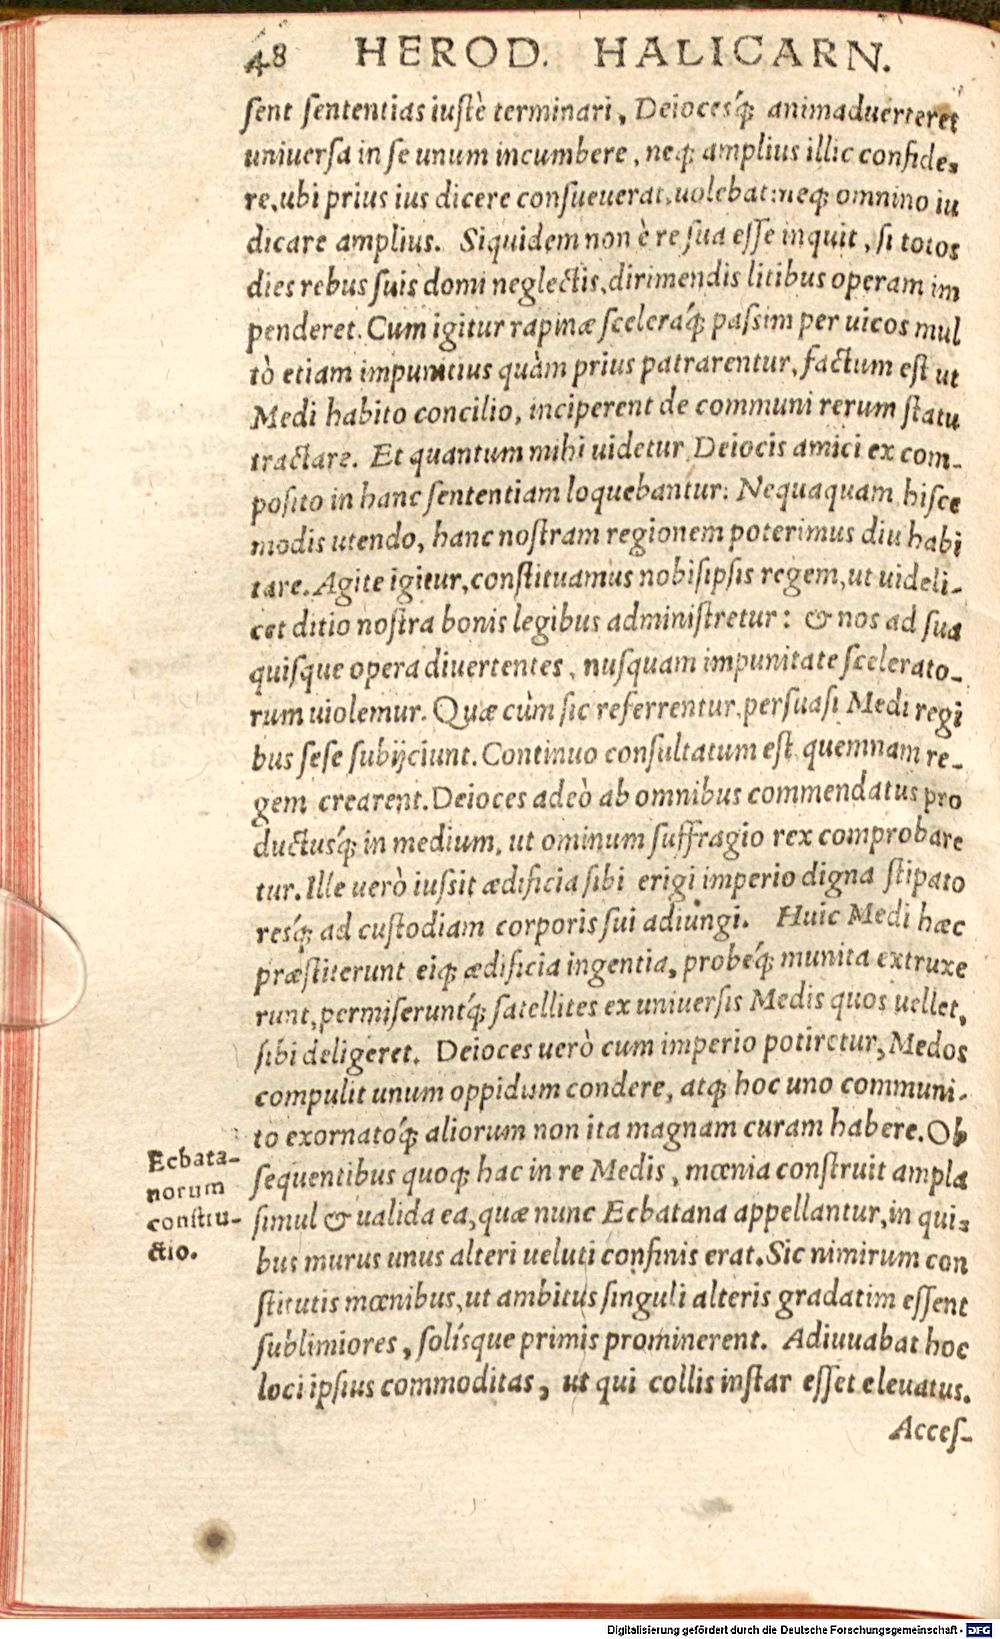 48 HEROD. HALICARN.
sent sententias iustè terminari, Deiocesq́ꝫ animaduerteret
uniuersa in se unum incumbere, neqꝫ amplius illic confide-
re, ubi prius ius dicere consueuerat, uolebat: neqꝫ omnino iu
dicare amplius. Siquidem non è re sua esse inquit, si totos
dies rebus suis domi neglectis, dirimendis litibus operam im
penderet. Cum igitur rapinæ sceleraq́ꝫ passim per uicos mul
tò etiam impunitius quàm prius patrarentur, factum est ut
Medi habito concilio, inciperent de communi rerum statu
tractare. Et quantum mihi uidetur Deiocis amici ex com-
posito in hanc sententiam loquebantur: Nequaquam hisce
modis utendo, hanc nostram regionem poterimus diu habi
tare. Agite igitur, constituamus nobisipsis regem, ut uideli-
cet ditio nostra bonis legibus administretur: & nos ad sua
quisque opera diuertentes, nusquam impunitate scelerato-
rum uiolemur. Quæ cùm sic referrentur, persuasi Medi regi
bus sese subijciunt. Continuo consultatum est quemnam re-
gem crearent. Deioces adeò ab omnibus commendatus pro
ductusq́ꝫ in medium, ut ominum suffragio rex comprobare
tur. Ille uerò iussit ædificia sibi erigi imperio digna stipato
resq́ꝫ ad custodiam corporis sui adiungi. Huic Medi hæc
præstiterunt eiqꝫ ædificia ingentia, probeq́ꝫ munita extruxe
runt, permiseruntq́ꝫ satellites ex uniuersis Medis quos uellet,
sibi deligeret. Deioces uerò cum imperio potiretur, Medos
compulit unum oppidum condere, atqꝫ hoc uno communi-
to exornatoq́ꝫ aliorum non ita magnam curam habere. Ob
sequentibus quoqꝫ hac in re Medis, mœnia construit ampla
simul & ualida ea, quæ nunc Ecbatana appellantur, in qui-
bus murus unus alteri ueluti confinis erat. Sic nimirum con
stitutis mœnibus, ut ambitus singuli alteris gradatim essent
sublimiores, solísque primis prominerent. Adiuuabat hoc
loci ipsius commoditas, ut qui collis instar esset eleuatus.
Acces-
Ecbata-
norum
constru-
ctio.
Digitalisierung gefördert durch die Deutsche Forschungsgemeinschaft - DFG